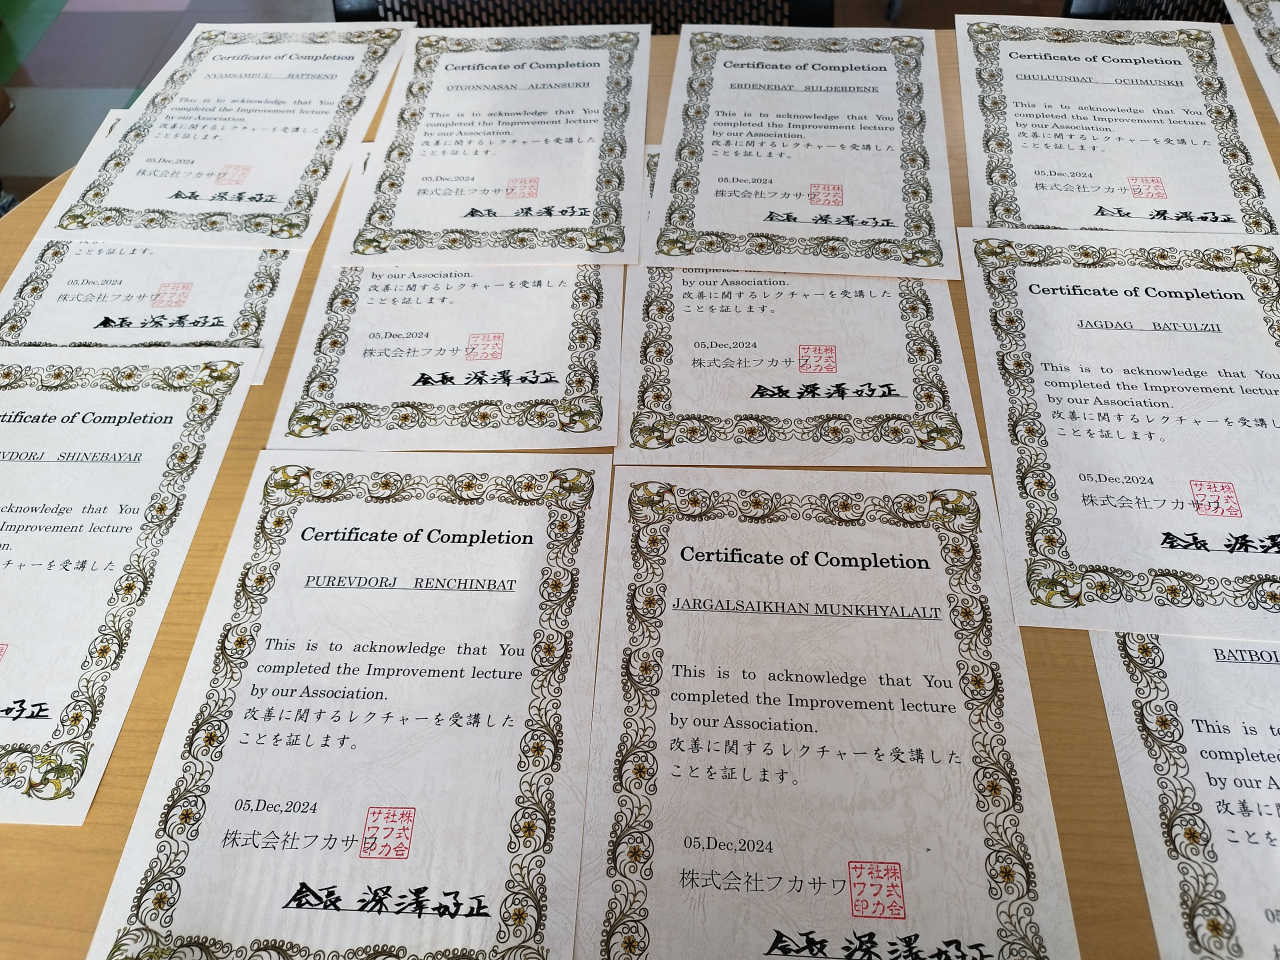 Certificate of Completion
NYAMSAMBUU BATTSEND
This is to acknowledge that You
completed the Improvement lecture
by our Association.
改善に関するレクチャーを受講した
ことを証します。
05,Dec,2024
株式会社フカサワ
会長 深澤好正
Certificate of Completion
OTGONNASAN ALTANSUKH
This is to acknowledge that You
completed the Improvement lecture
by our Association.
改善に関するレクチャーを受講した
ことを証します。
05,Dec,2024
株式会社フカサワ
会長 深澤好正
Certificate of Completion
ERDENEBAT SULDERDENE
This is to acknowledge that You
completed the Improvement lecture
by our Association.
改善に関するレクチャーを受講した
ことを証します。
05,Dec,2024
株式会社フカサワ
会長 深澤好正
Certificate of Completion
CHULUUNBAT OCHMUNKH
This is to acknowledge that You
completed the Improvement lecture
by our Association.
改善に関するレクチャーを受講した
ことを証します。
05,Dec,2024
株式会社フカサワ
会長 深澤好正
ことを証します。
05,Dec,2024
株式会社フカサワ
会長 深澤好正
by our Association.
改善に関するレクチャーを受講した
ことを証します。
05,Dec,2024
株式会社フカサワ
会長 深澤好正
completed the Improvement lecture
by our Association.
改善に関するレクチャーを受講した
ことを証します。
05,Dec,2024
株式会社フカサワ
会長 深澤好正
Certificate of Completion
JAGDAG BAT-ULZII
This is to acknowledge that You
completed the Improvement lecture
by our Association.
改善に関するレクチャーを受講し
ことを証します。
05,Dec,2024
株式会社フカサワ
会長 深澤
of Completion
SHINEBAYAR
You
Improvement lecture
チャーを受講した
好正
Certificate of Completion
PUREVDORJ RENCHINBAT
This is to acknowledge that You
completed the Improvement lecture
by our Association.
改善に関するレクチャーを受講した
ことを証します。
05,Dec,2024
株式会社フカサワ
株式会社フカサワ印
会長 深澤好正
Certificate of Completion
JARGALSAIKHAN MUNKHYALALT
This is to acknowledge that You
completed the Improvement lecture
by our Association.
改善に関するレクチャーを受講した
ことを証します。
05,Dec,2024
株式会社フカサワ
株式会社フカサワ印
会長 深澤好正
This is
by our
改善に関
ことを